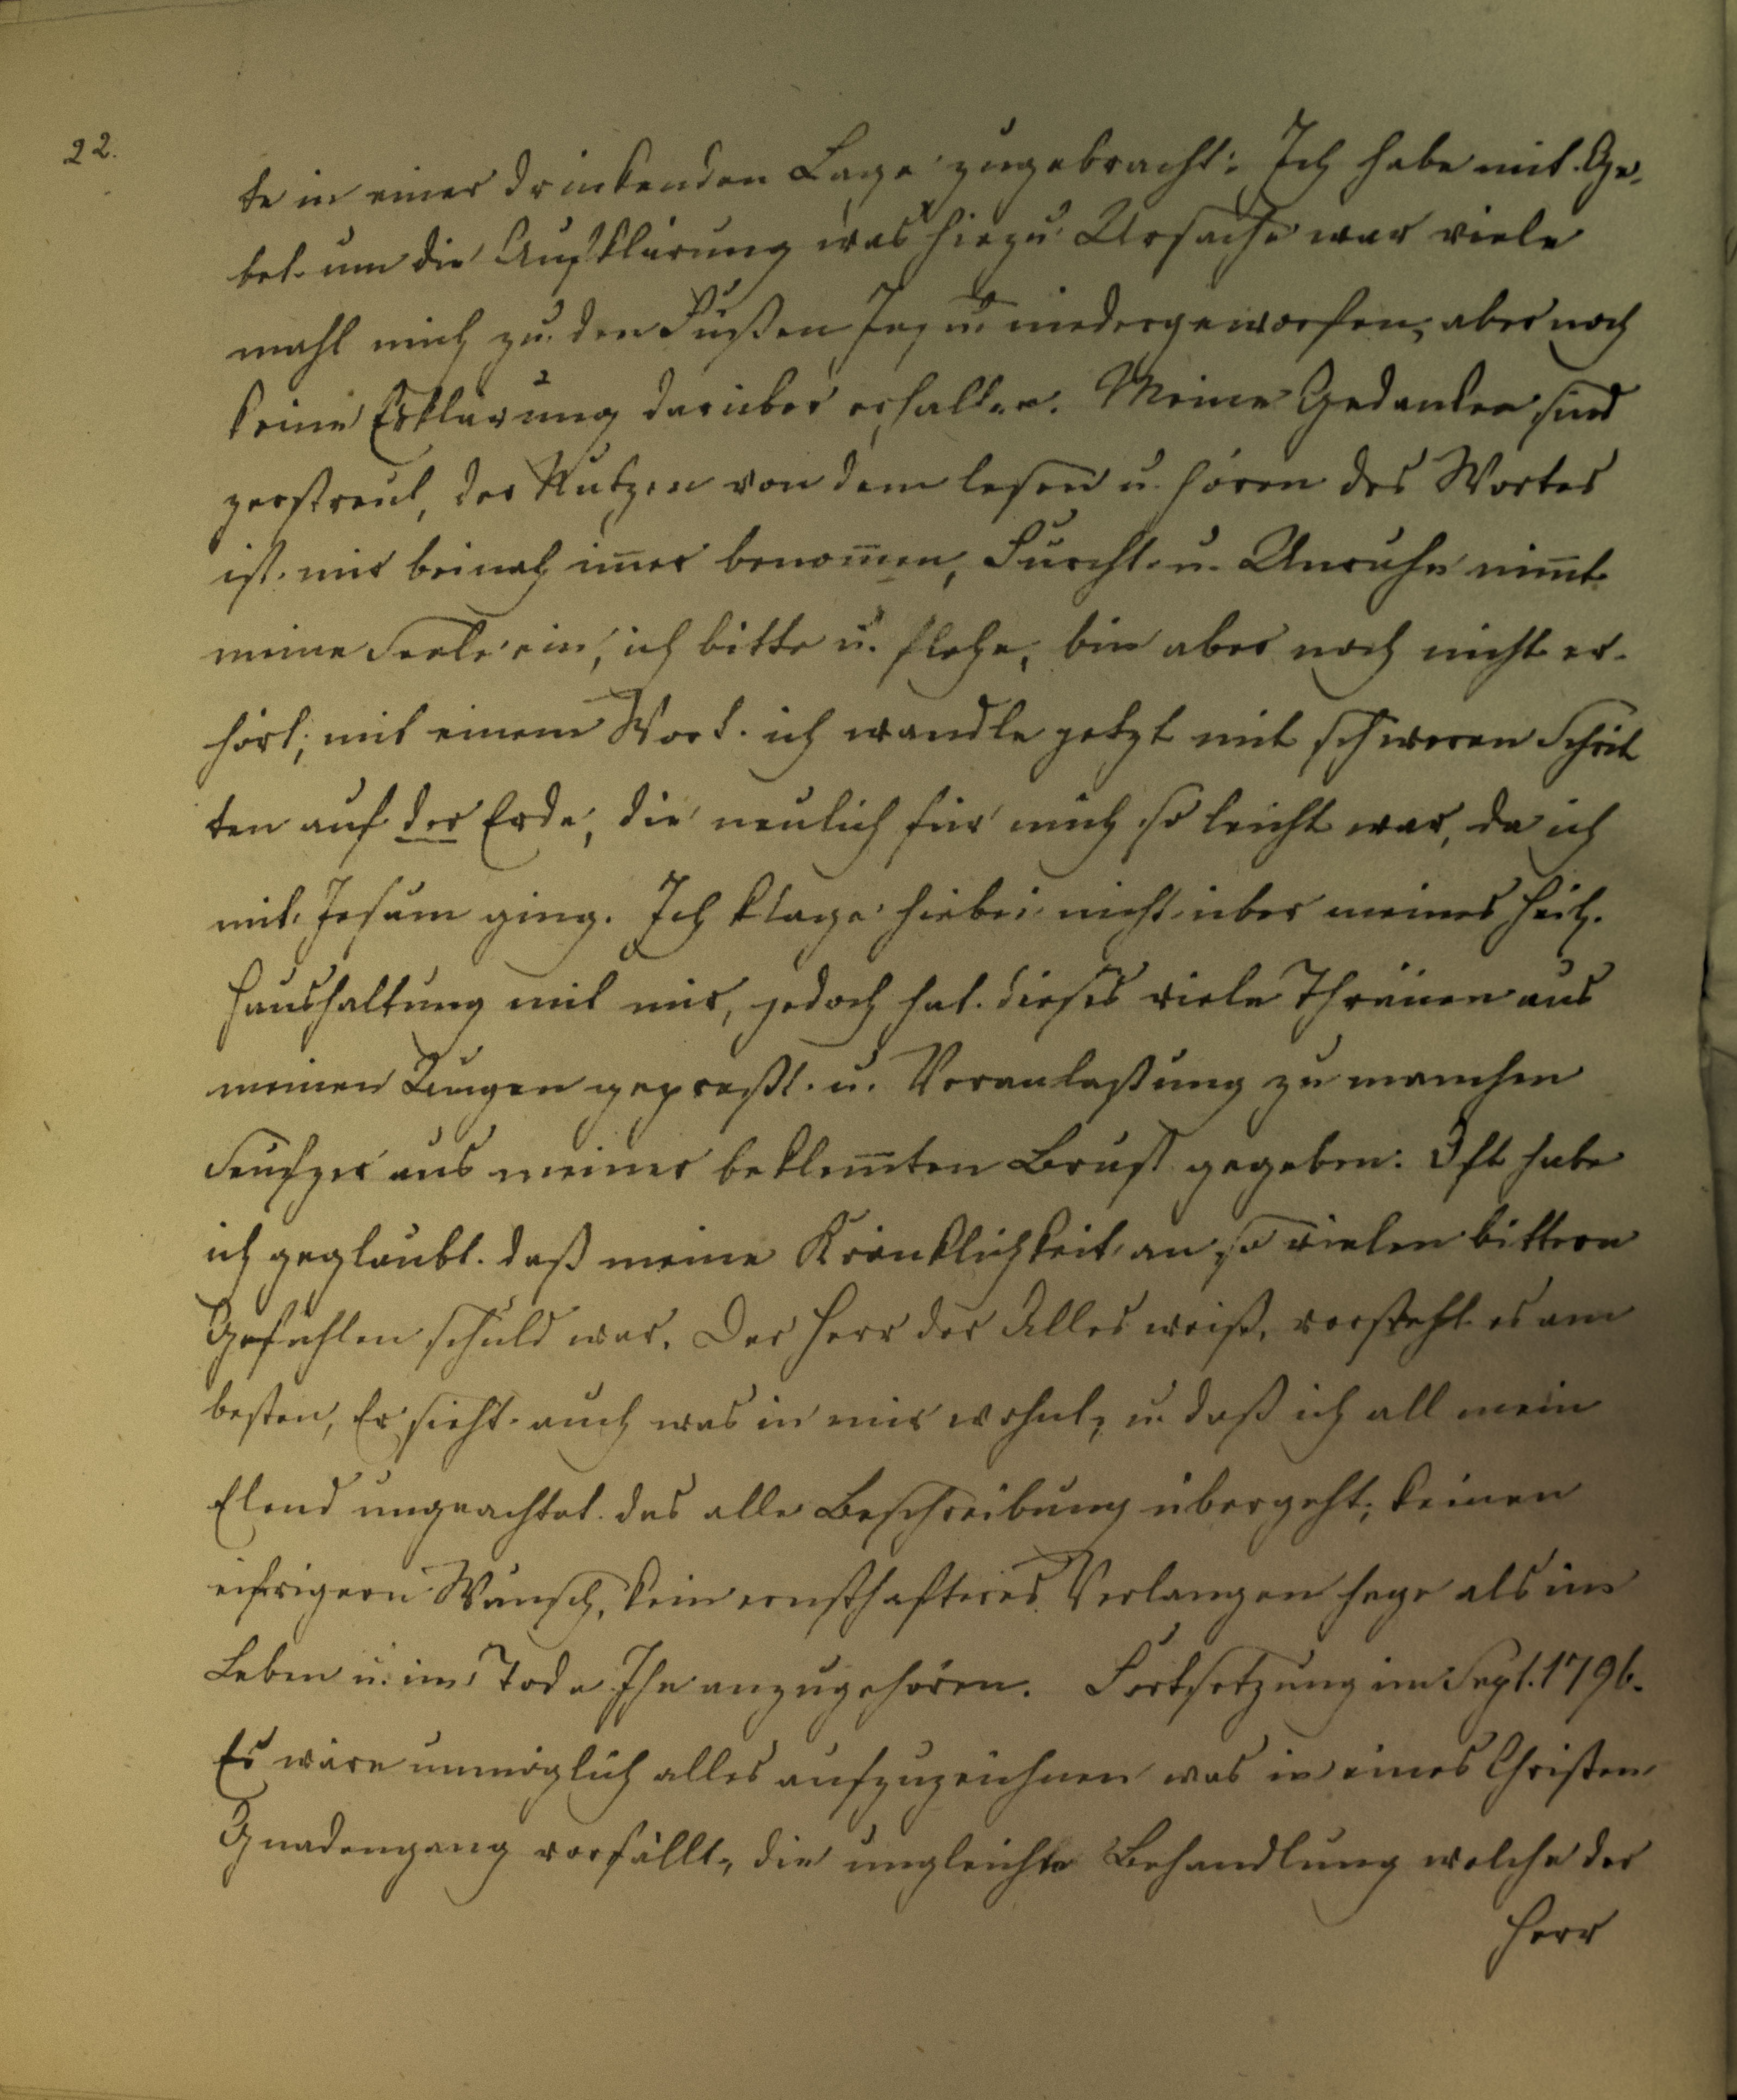 22.
te in einer drückenden Lage zugebracht: Ich habe mit Ge-
bet um die Aufklärung was hiezu Ursache war viele
mahl mich zu den Füßen Jesu niedergeworfen, aber noch
keine Erklärung darüber erhalten. Meine Gedanken sind
zerstreut, der Nutzen von dem lesen u. hören des Wortes
ist mir beinah im̅er benom̅en, Furcht u. Unruhe nim̅t
meine Seele ein, ich bitte u. flehe, bin aber noch nicht er-
hört; mit einem Wort. ich wandle jetzt mit schweren Schrit
ten auf der Erde, die neulich für mich so leicht war, da ich
mit Jesum ging. Ich klage hiebei nicht über meines
Haushaltung mit mir, jedoch hat dieses viele Thränen aus
meinen Augen gepreßt u. Veranlaßung zu manchen
Seufzer aus meiner beklem̅ten Brust gegeben: Oft habe
ich geglaubt. daß meine Kränklichkeit an so vielen bittern
Gefühlen schuld war. Der Herr der Alles weiß, versteht es am
besten, Er sieht auch was in mir wohnt, u. daß ich all mein
Elend ungeachtet das alle Beschreibung übergeht, keinen
eifrigern Wunsch, kein ernsthafteres Verlangen hege als im
Leben u. im Tode Ihn anzugehören. Fortsetzung im Sept. 1796.
Es wäre unmöglich alles aufzuzeichnen was in eines Christen
Gnadengang vorfällt, die ungleiche Behandlung welche der
Herr